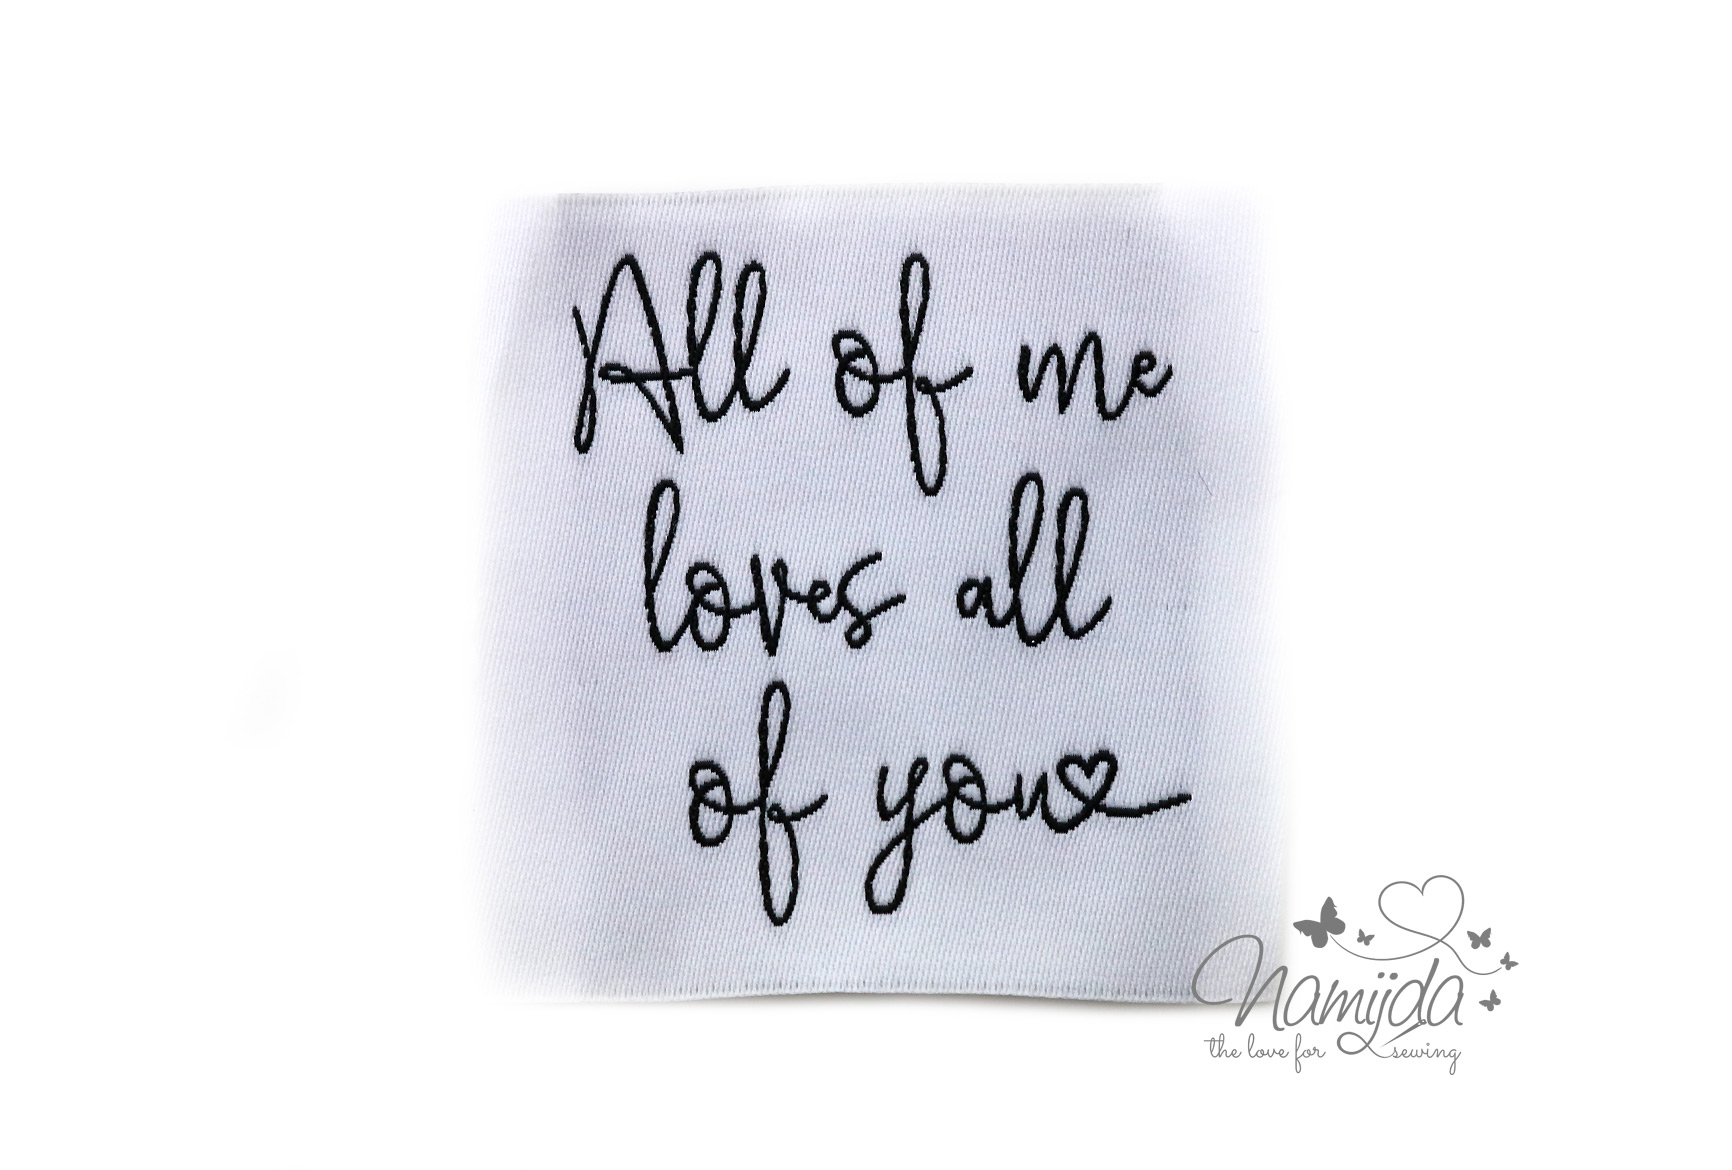 All of me
loves all
of you
Namijda
the love for sewing